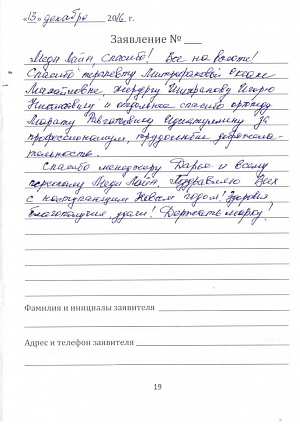 «13» декабря 2016 г.
Заявление № ___
Меди Лайн, Спасибо! Все на высоте!
Спасибо терапевту Митрфановой Оксане
Михайловне, хирургу Шитрапову Игорю
Николаевичу и огромное спасибо ортопеду
Марату Равгатовичу за
профессионализм, трудолюбие доброжела-
тельность.
Спасибо менеджеру Дарье и всему
персоналу Меди Лайн, Поздравляю Всех
с наступающим Новым годом! Здоровья
благополучия, удачи! Держать марку!
Фамилия и инициалы заявителя
Адрес и телефон заявителя
19